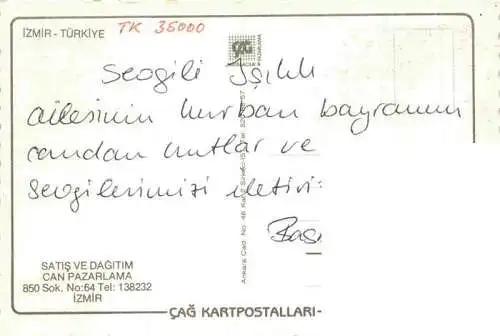 İZMİR - TÜRKİYE
TK 35000
Sevgili Işıklı
ailesinin kurban bayramını
candan kutlar ve
Sevgilerimizi iletiri
Baş
SATIŞ VE DAĞITIM
CAN PAZARLAMA
850 Sok. No:64 Tel: 138232
İZMİR
ÇAĞ KARTPOSTALLARI